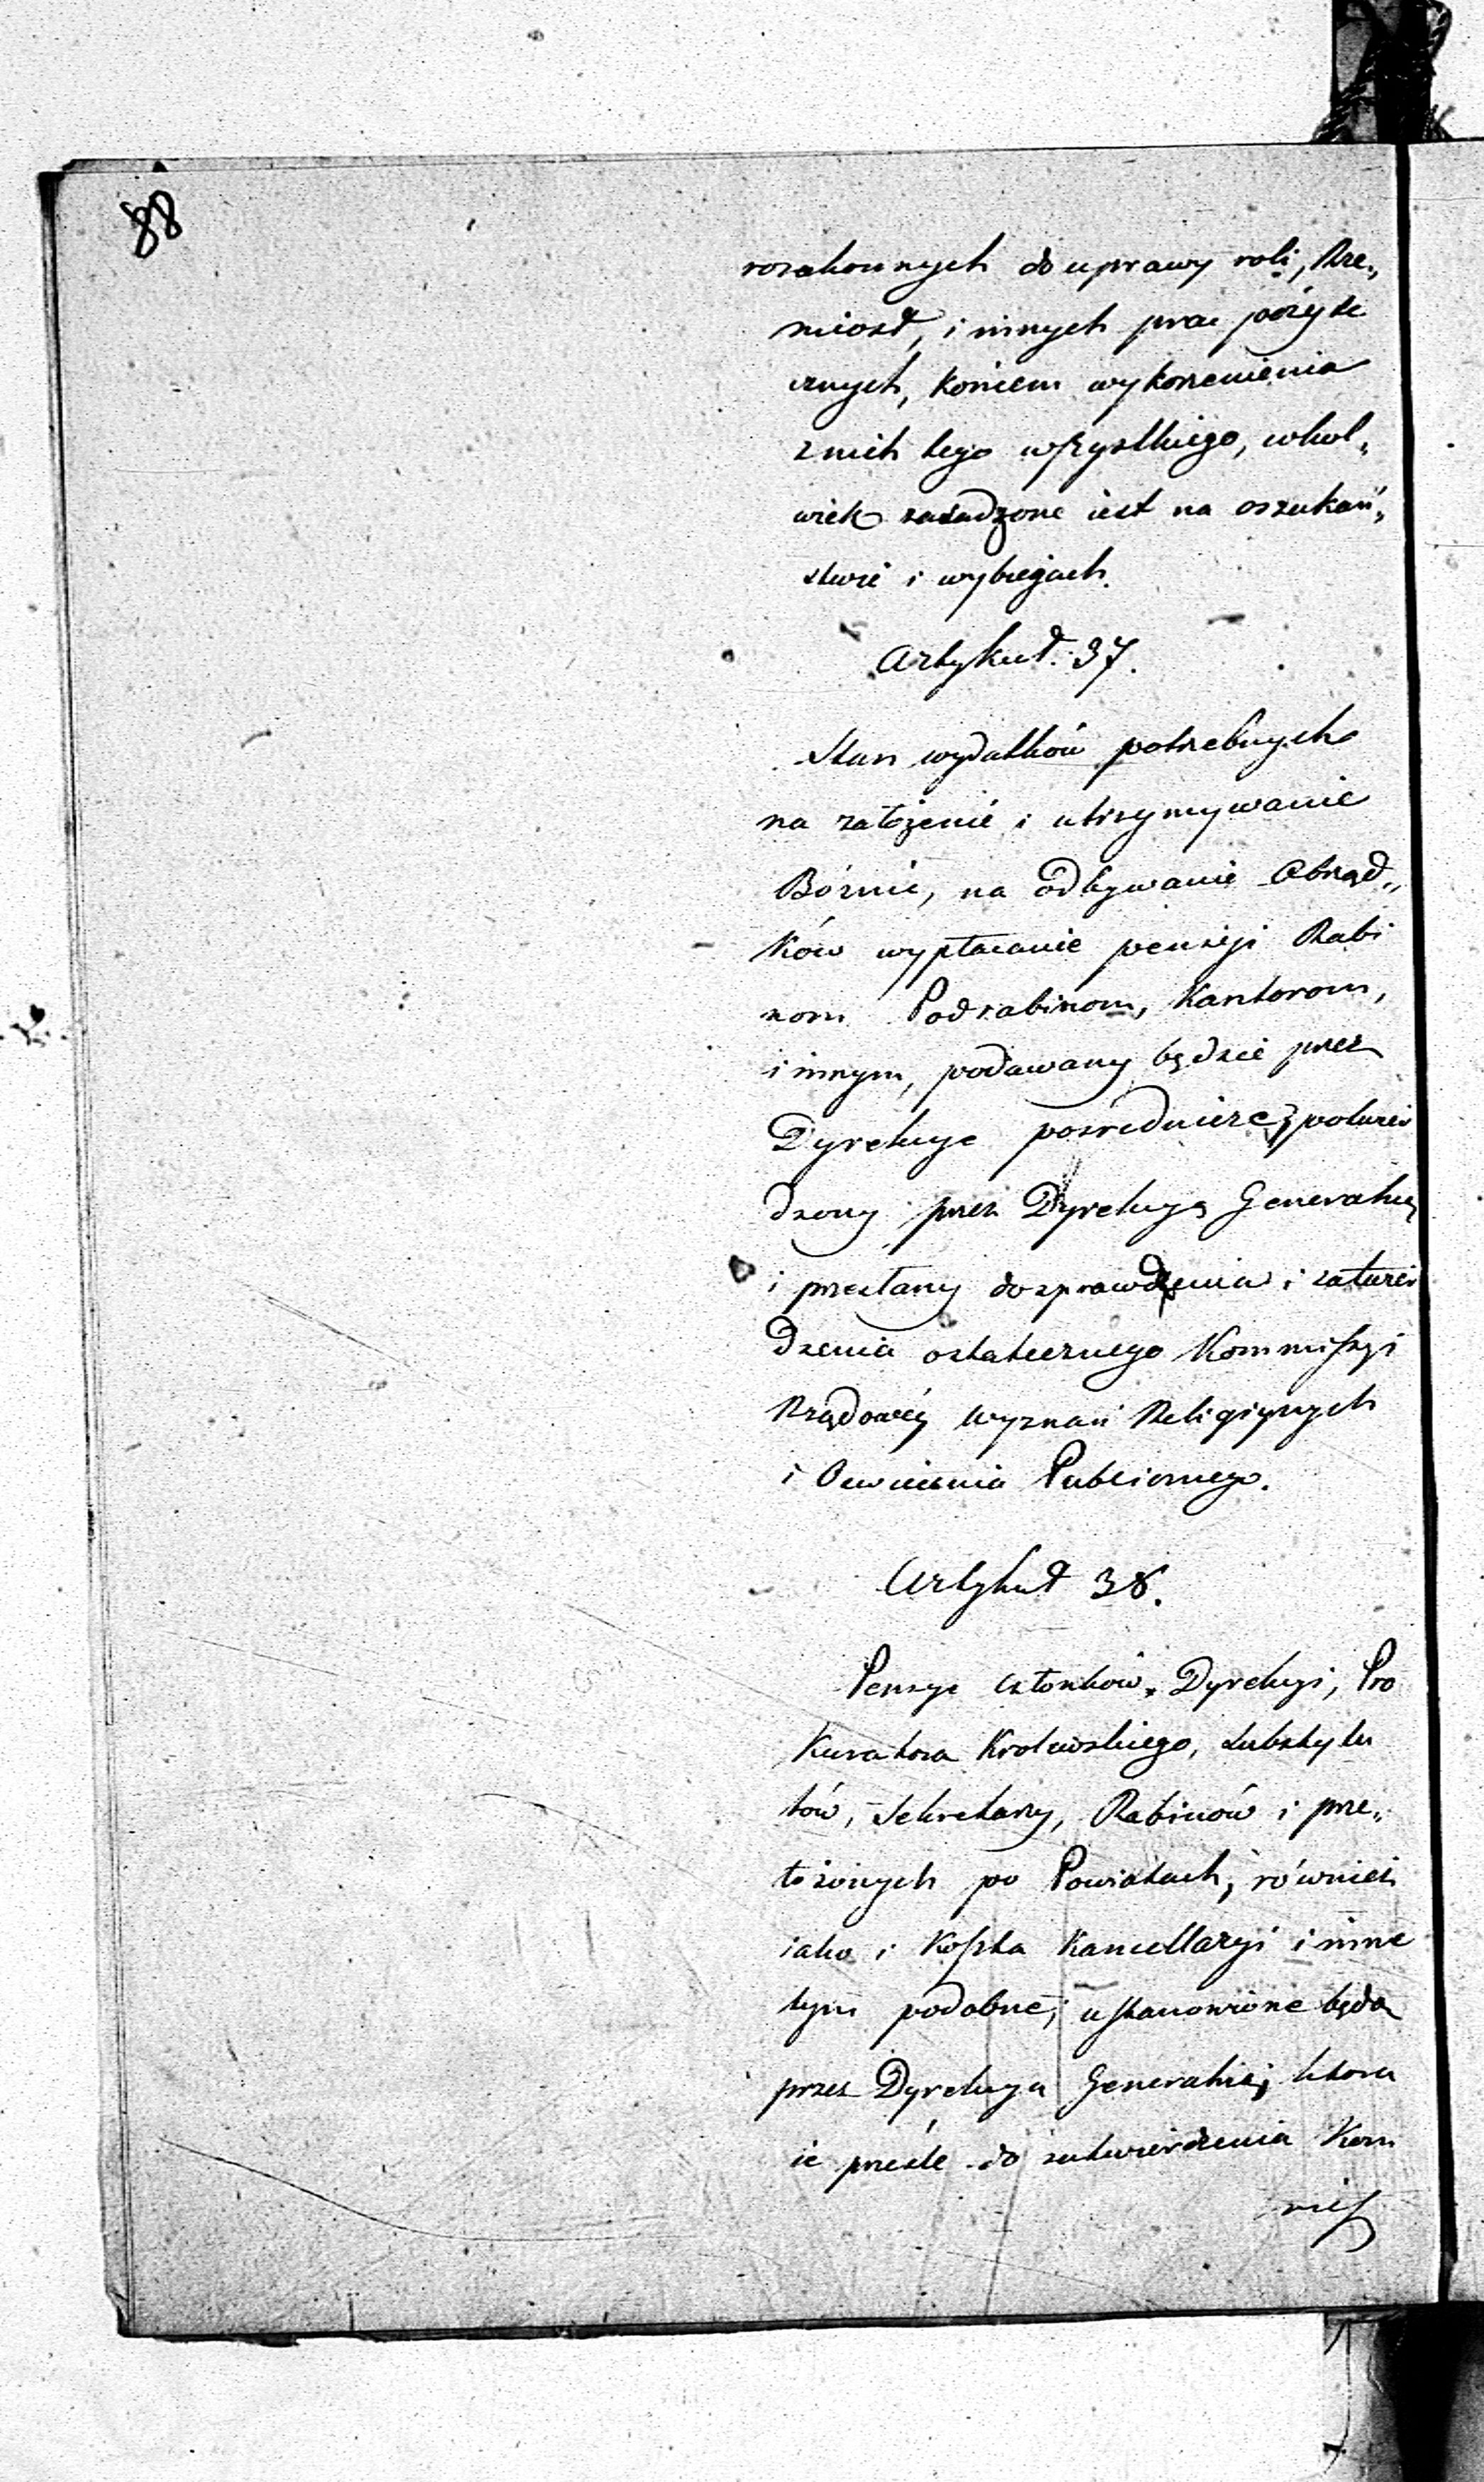 88
rozakonnych do uprawy roli, Rze„
miosł, i innych prac pożyte
cznych, końcem wykorzenienia
z nich tego wszystkiego, cokol„
wiek zasadzone iest na oszukań„
stwie i wybiegach.
Artykuł. 37.
Stan wydatków potrzebnych
na założenie i utrzymywanie
Bóżnic, na odbywanie Obrząd„
ków wypłacanie pensyi Rabi
nom Podrabinom, Kantorom,
i innym, podawany będzie przez
Dyrekcye pośrednicze, potwier
dzony przez Dyrekcyą Generalną
i przesłany do sprawdzenia i zatwier
dzenia ostatecznego Kommissyi
Rządowéy Wyznań Religiynych
i Oświecenia Publicznego.
Artykuł 38.
Pensye członków Dyrekcyi, Pro
kuratora Krolewskiego, Substytu
tów, Sekretarzy, Rabinów i prze„
łożonych po Powiatach, również
iako i Koszta Kancellaryi i inne
tym podobne, ustanowione będą
przez Dyrekcyą Generalną, ktora
ie prześle do zatwierdzenia Kom
miss